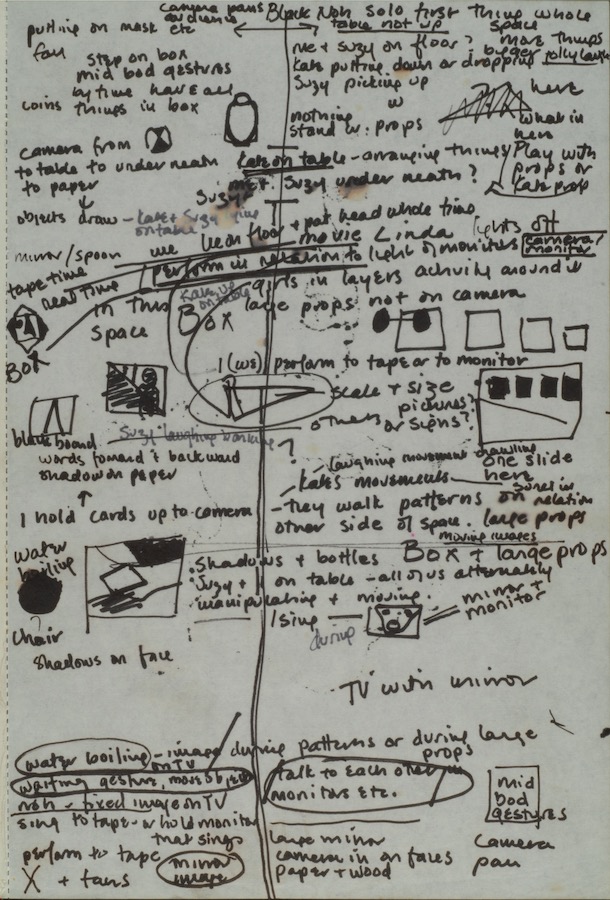 camera pans
audience
putting on mask etc
fan
step on box
mid bod gestures
by time have all
things in box
coins
camera from
to table to underneath
to paper
objects draw - Kate + Suzy
on table
mirror/spoon
tape time
real time
in this
space
Box
black board
words forward + backward
shadow on paper
Suzy laughing
I hold cards up to camera
water
boiling
chair
shadows on face
Black Noh solo first thing whole
table not up
space
more things
bigger
me + Suzy on floor?
Kate putting down or dropping
Suzy picking up
nothing
stand w. props
here
what in
here
Play with
props or
Kate prop
Kate on table - arranging things
me + Suzy under neath?
Suzy
we lie on floor + pat head whole trio
movie Linda
lights off
camera/
monitor
perform in relation to light of monitors
Kate up
on table
girls in layers activity around it
Box
large props not on camera
I (we) perform to tape or to monitor
scale + size
pictures?
others or signs?
?
laughing movement
crawling
Kate's movements
one slide
here
- they walk patterns on
relation
other side of space.
large props
moving images
Box + large props
Shadows + bottles
Suzy + I on table - all of us alternately
manipulating + moving.
/sing
during
mirror +
monitor
TV with mirror
water boiling - image during patterns or during large
on TV
props
waiting gesture, more objects
noh - fixed image on TV
sing to tape - or hold monitor
that sings
perform to tape
X + fans
mirror
image
talk to each other in
monitors etc.
large mirror
camera in on faces
paper + wood
mid
bod
gestures
camera
pan